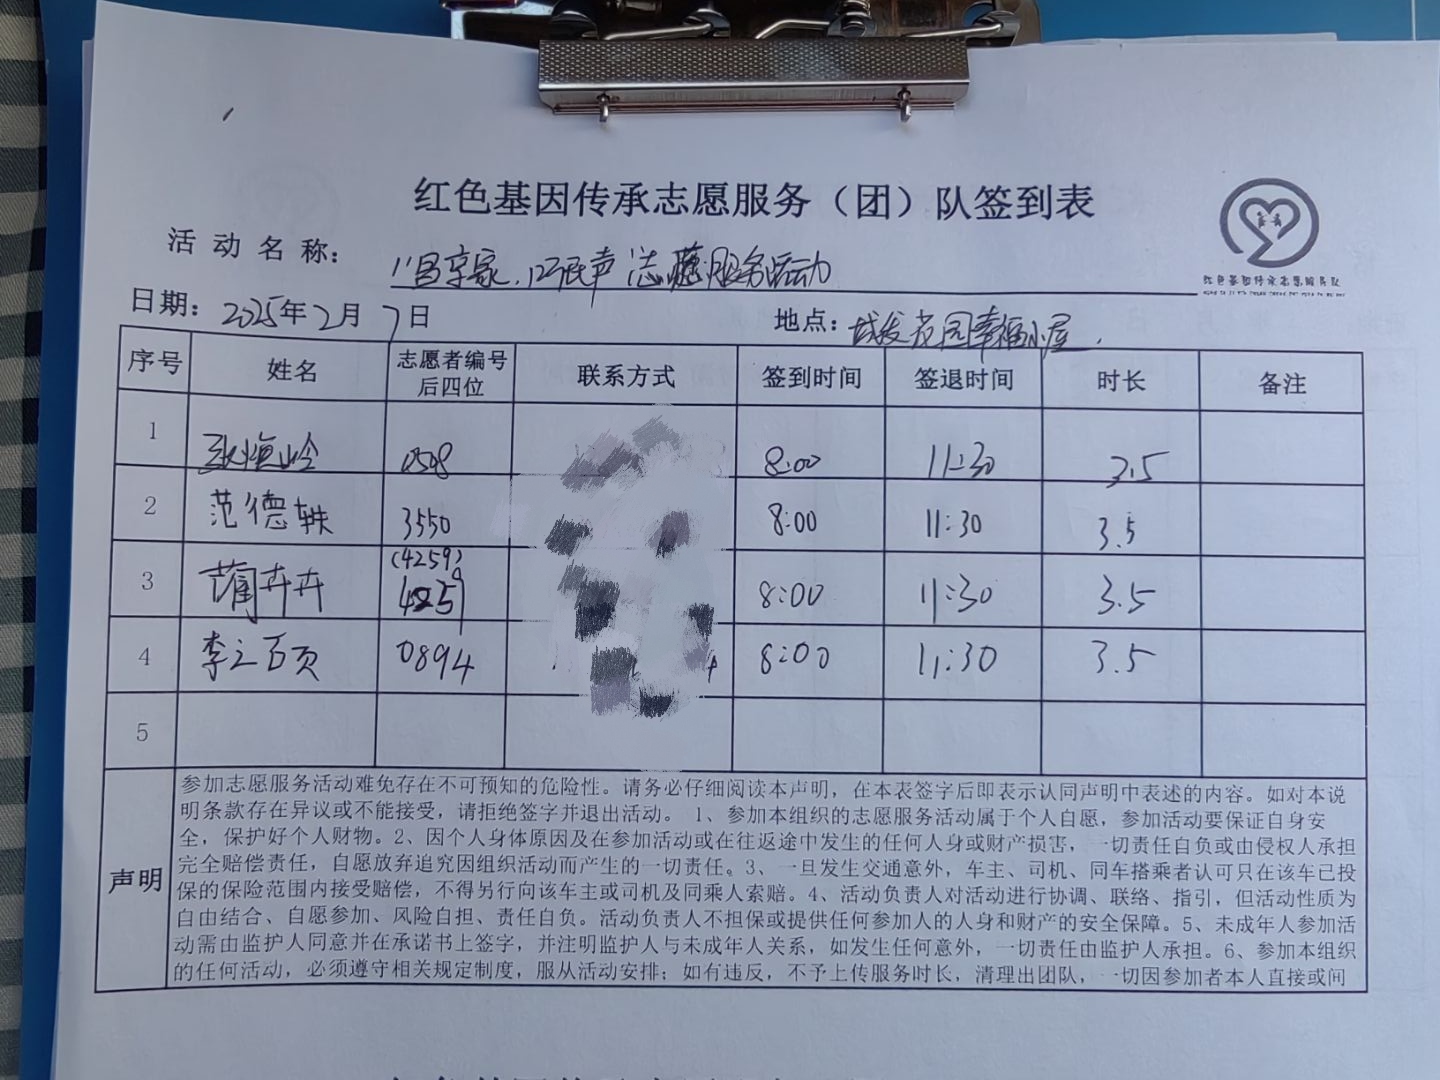 红色基因传承志愿服务（团）队签到表
红色基因传承志愿服务队
活动名称： 志愿服务活动
日期：2025年2月7日 地点：城发花园幸福小屋
序号 姓名 志愿者编号后四位 联系方式 签到时间 签退时间 时长 备注
1 0508 8:00 11:30 3.5
2 范德轶 3550 8:00 11:30 3.5
3 蔺卉卉 (4259) 4259 8:00 11:30 3.5
4 李之页 0894 8:00 11:30 3.5
5
声明
参加志愿服务活动难免存在不可预知的危险性。请务必仔细阅读本声明，在本表签字后即表示认同声明中表述的内容。如对本说
明条款存在异议或不能接受，请拒绝签字并退出活动。 1、参加本组织的志愿服务活动属于个人自愿，参加活动要保证自身安
全，保护好个人财物。2、因个人身体原因及在参加活动或在往返途中发生的任何人身或财产损害，一切责任自负或由侵权人承担
完全赔偿责任，自愿放弃追究因组织活动而产生的一切责任。3、一旦发生交通意外，车主、司机、同车搭乘者认可只在该车已投
保的保险范围内接受赔偿，不得另行向该车主或司机及同乘人索赔。4、活动负责人对活动进行协调、联络、指引，但活动性质为
自由结合、自愿参加、风险自担、责任自负。活动负责人不担保或提供任何参加人的人身和财产的安全保障。5、未成年人参加活
动需由监护人同意并在承诺书上签字，并注明监护人与未成年人关系，如发生任何意外，一切责任由监护人承担。6、参加本组织
的任何活动，必须遵守相关规定制度，服从活动安排；如有违反，不予上传服务时长，清理出团队，一切因参加者本人直接或间